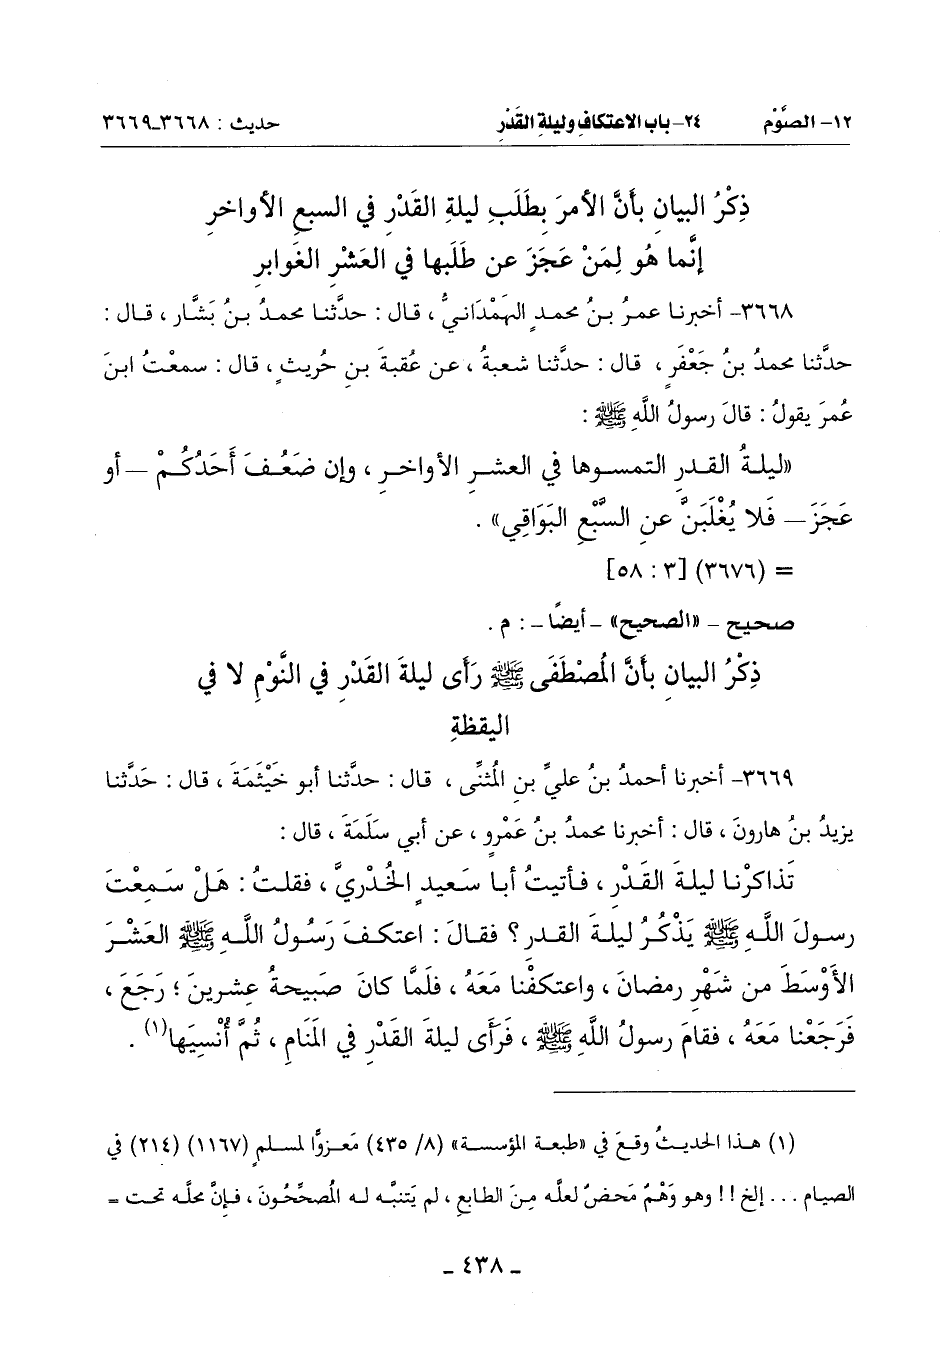 ١٢- الصَّوْم ٢٤- باب الاعتكافِ وليلةِ القَدْرِ حديث : ٣٦٦٨-٣٦٦٩
ذِكْرُ البيانِ بأنَّ الأمرَ بِطَلَبِ ليلةِ القَدْرِ في السبعِ الأواخرِ
إنَّما هُو لِمَنْ عَجَزَ عن طَلَبها في العَشْرِ الغَوابرِ
٣٦٦٨- أخبرنا عمرُ بنُ محمدٍ الهَمْدَانيُّ ، قال : حدَّثنا محمدُ بنُ بَشَّار ، قال :
حدَّثنا محمدُ بنُ جَعْفَرٍ ، قال : حدَّثنا شعبةُ ، عن عُقبةَ بنِ حُريثٍ ، قال : سمعْتُ ابنَ
عُمرَ يقولُ : قالَ رسولُ اللَّهِ ﷺ :
«ليلةُ القدرِ التمسوها في العشرِ الأواخرِ ، وإن ضَعُفَ أَحَدُكُمْ — أو
عَجَزَ — فَلا يُغْلَبَنَّ عنِ السَّبْعِ البَوَاقِي» .
= (٣٦٧٦) [٣ : ٥٨]
صحيح - «الصحيح» - أيضًا - : م .
ذِكْرُ البيانِ بأنَّ المُصْطَفَى ﷺ رَأَى ليلةَ القَدْرِ في النَّوْمِ لا في
اليقظةِ
٣٦٦٩- أخبرنا أحمدُ بنُ عليِّ بنِ المُثنَّى ، قال : حدَّثنا أبو خَيْثَمَةَ ، قال : حَدَّثنا
يزيدُ بنُ هارونَ ، قال : أخبرنا محمدُ بنُ عَمْرٍو ، عن أبي سَلَمَةَ ، قال :
تَذاكرْنا ليلةَ القَدْرِ ، فأتيتُ أبا سَعيدٍ الخُدْريَّ ، فقلتُ : هَلْ سَمِعْتَ
رسولَ اللَّهِ ﷺ يَذْكُرُ ليلةَ القدرِ ؟ فقالَ : اعتكفَ رَسُولُ اللَّهِ ﷺ العَشْرَ
الأَوْسَطَ من شَهْرِ رمضانَ ، واعتكفْنا مَعَهُ ، فلَمَّا كانَ صَبيحةُ عِشرينَ ؛ رَجَعَ ،
فَرَجَعْنا مَعَهُ ، فقامَ رسولُ اللَّهِ ﷺ ، فَرَأى ليلةَ القَدْرِ في المَنامِ ، ثُمَّ أُنْسِيَها(١) .
(١) هذا الحديثُ وقعَ في «طبعة المؤسسة» (٨/ ٤٣٥) مَعزوًّا لمسلمٍ (١١٦٧) (٢١٤) في
الصيام ... إلخ !! وهو وَهْمٌ مَحضٌ لعلَّه مِنَ الطابعِ ، لم يَتنبَّه له المُصحِّحُونَ ، فإنَّ محلَّه تحت =
- ٤٣٨ -